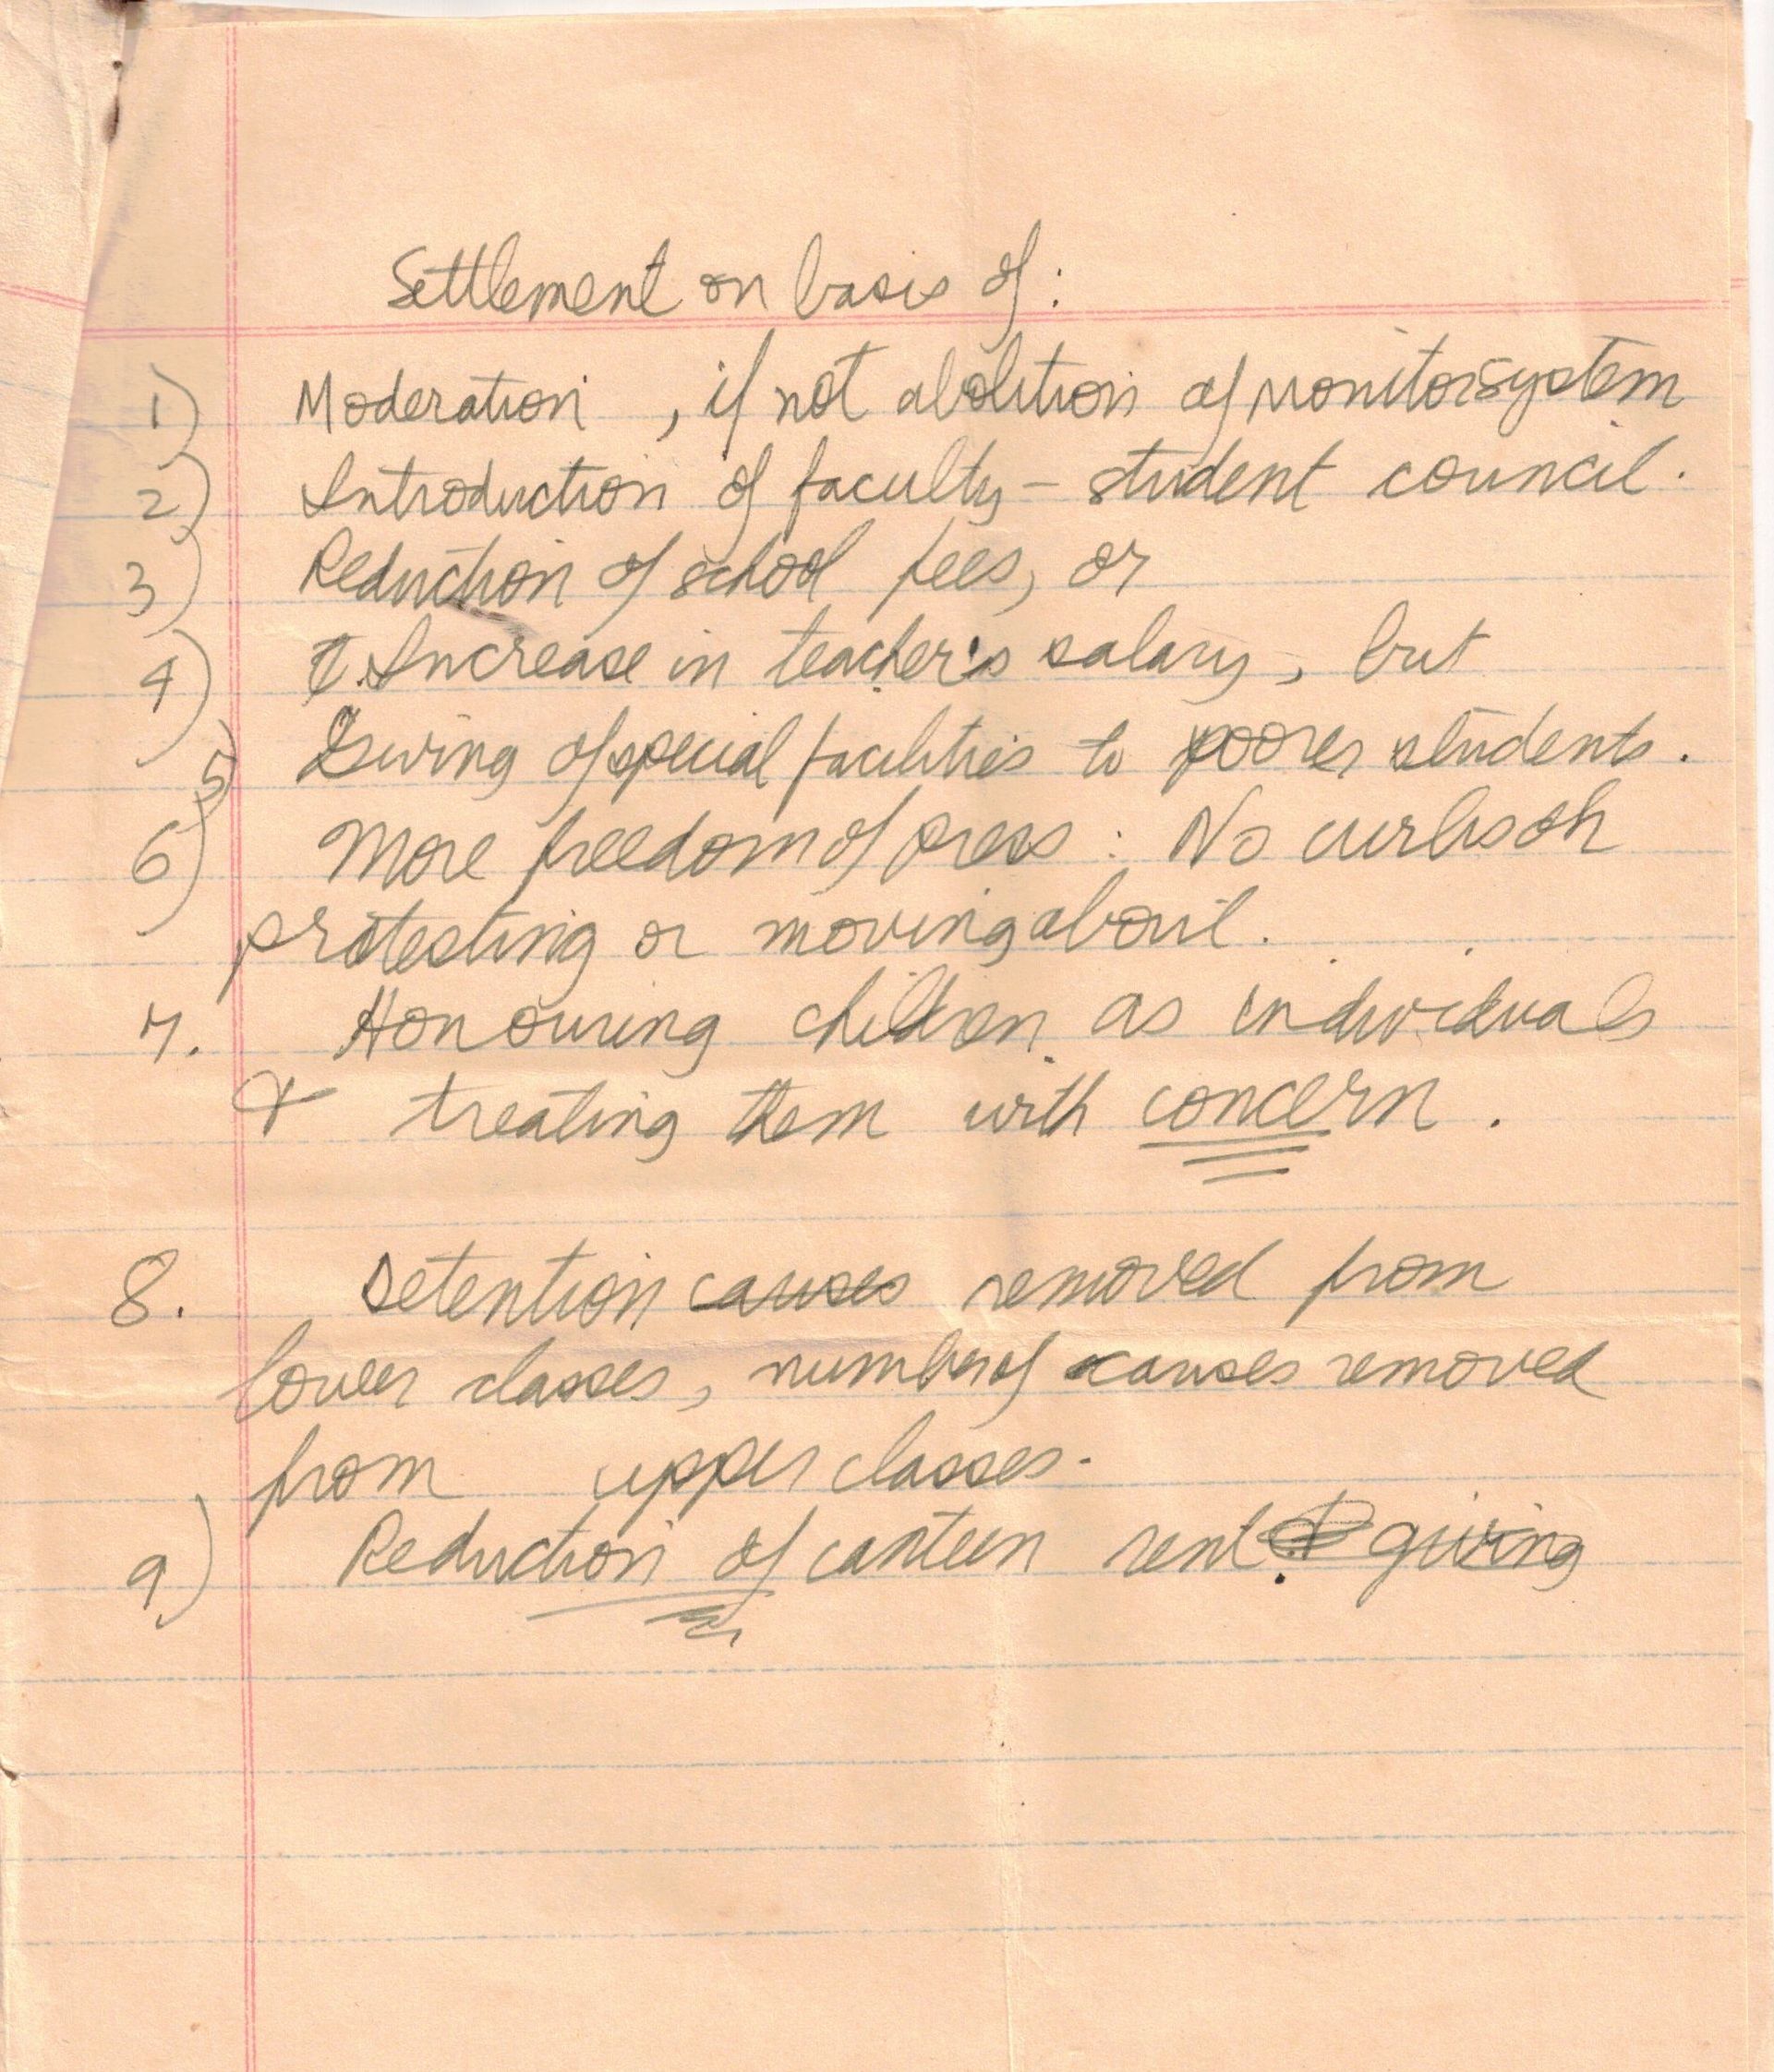 Settlement on basis of:
1) Moderation, if not abolition of monitorsystem
2) Introduction of faculty - student council.
3) Reduction of school fees, or
4) Increase in teacher's salary, but
5) Giving of special facilities to poorer students.
6) More freedom of press: No curbs on
protesting or moving about.
7. Honouring children as individuals
& treating them with concern.
8. Detention causes removed from
lower classes, number of causes removed
from upper classes.
9) Reduction of canteen rent. giving